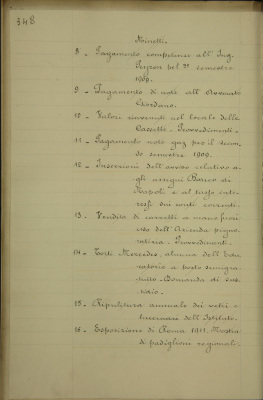 348
Minetti.
8 - Pagamento competenze all'Ing.
Peyron pel 2º semestre
1909.
9 - Pagamento di note all'Avvocato
Giordano.
10 - Valori rinvenuti nel locale delle
Cassette. Provvedimenti.
11 - Pagamento note gaz pro il secon-
do semestre 1909.
12 - Inserzioni dell'avviso relativo a-
gli assegni Banco di
Napoli e al tasso inte-
ressi dei conti correnti.
13 - Vendita di carretti a mano fuori
uso dell'Azienda pigno-
ratizia. Provvedimenti.
14 - Torti Mercedes, alunna dell'
a posto semigra-
tuito. Domanda di
15 - Ripulitura annuale dei vetri e
lucernari dell'Istituto.
16 - Esposizione di Roma 1911. Mostra
di padiglioni regionali.